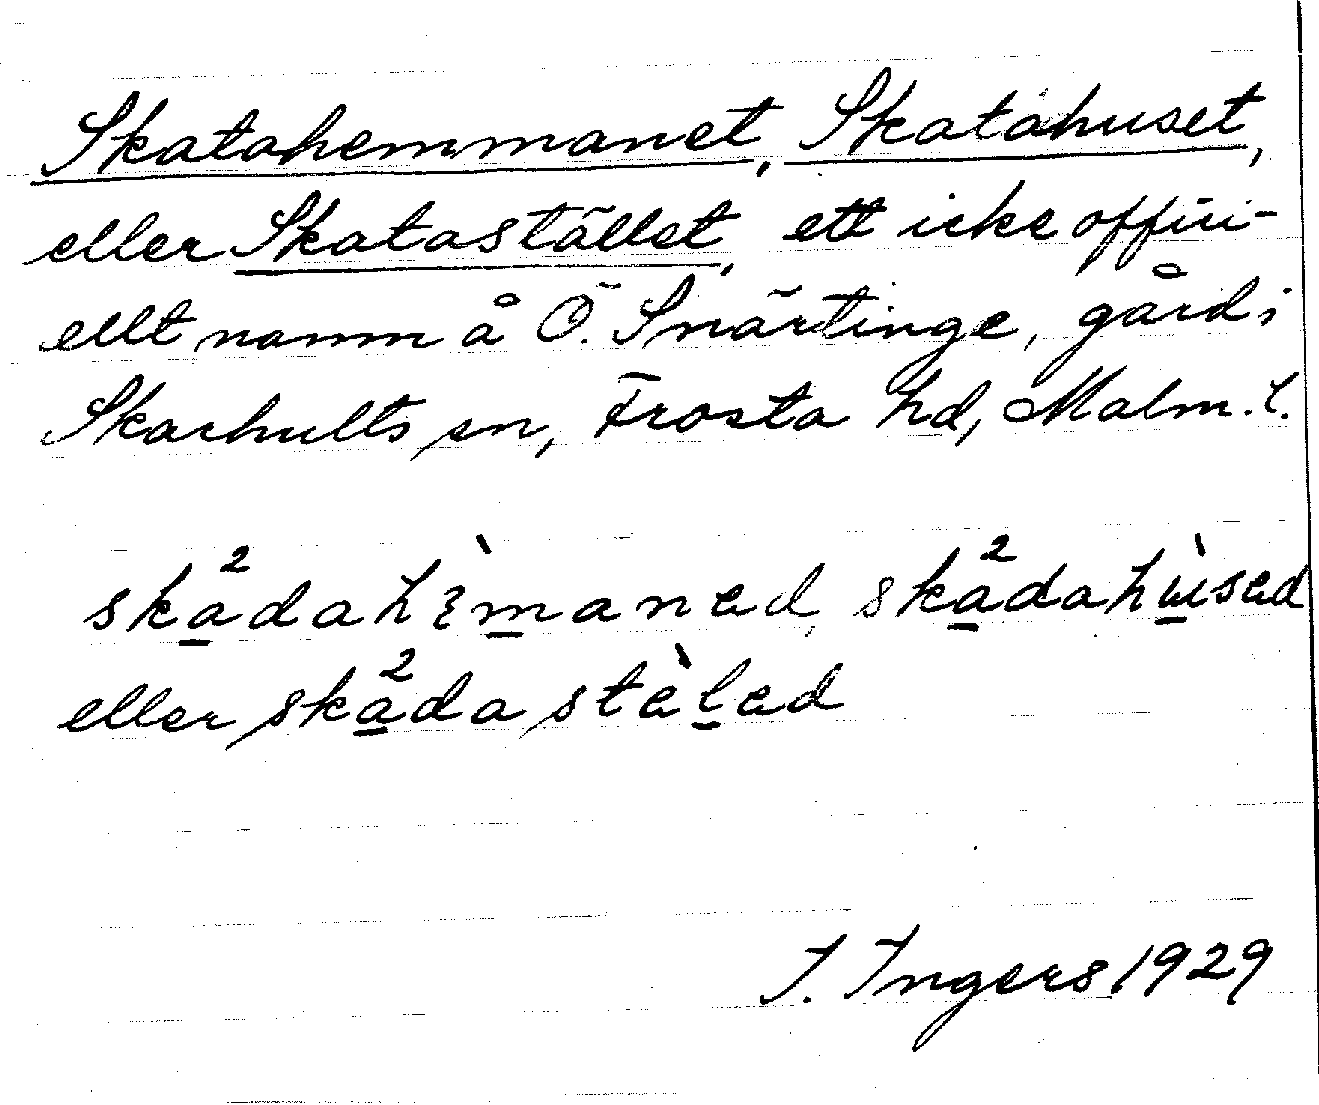 Skatahemmanet, Skatahuset,
eller Skatastället, ett icke offici-
ellt namn å Ö. Snärtinge, gård i
Skarhults sn, Frosta hd, Malm. l.
ska²dahɛ̀maned, ska²dahùsed
eller ska²dastèled
I. Ingers 1929